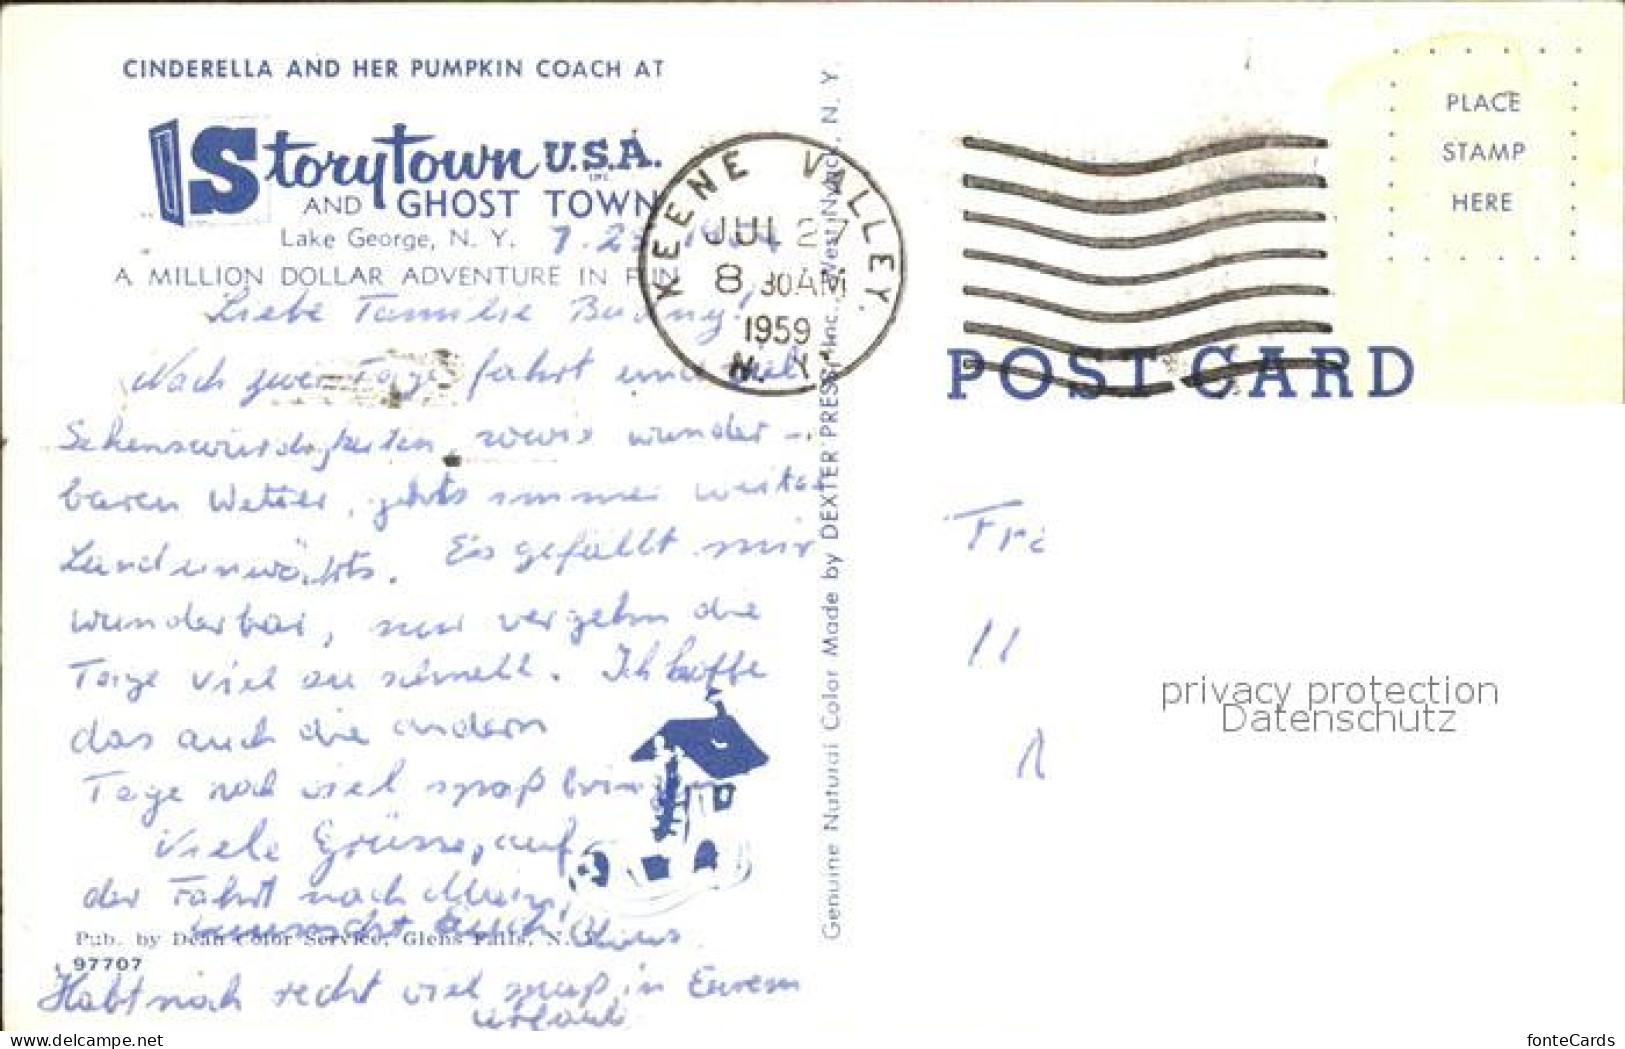 CINDERELLA AND HER PUMPKIN COACH AT
Storytown U.S.A. INC.
AND GHOST TOWN
Lake George, N. Y.
A MILLION DOLLAR ADVENTURE IN FUN
Liebe Familie
Nach zwei Tage fahrt und viel
Sehenswürdigkeiten, sowie wunder-
baren Wetter, gehts immer weiter
Landeinwärts. Es gefällt mir
wunderbar, nur vergehn die
Tage viel zu schnell. Ich hoffe
das auch die andern
Tage noch viel spaß bringen
Viele Grüsse, auf
der Fahrt nach
wünscht Euch
Habt noch recht viel spaß in Eurem
urlaub
Pub. by Dean Color Service, Glens Falls, N. Y.
97707
Genuine Natural Color Made by DEXTER PRESS, Inc., West Nyack, N. Y.
KEENE VALLEY.
JUL 27
8 30AM
1959
N. Y.
PLACE
STAMP
HERE
POST CARD
privacy protection
Datenschutz
www.delcampe.net
fonteCards